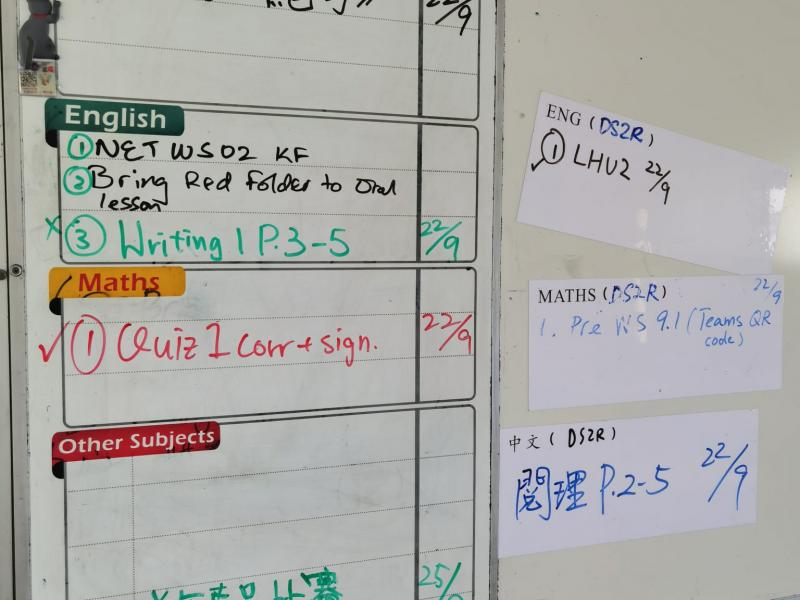 22/9
English
① NET WS02 KF
② Bring Red Folder to oral
lesson
③ Writing 1 P.3-5 22/9
Maths
① Quiz 1 corr + sign. 22/9
Other Subjects
比賽 25/
ENG (DS2R)
① LHU2 22/9
MATHS (DS2R) 22/9
1. Pre WS 9.1 (Teams QR
code)
中文 (DS2R)
閱理 P.2-5 22/9